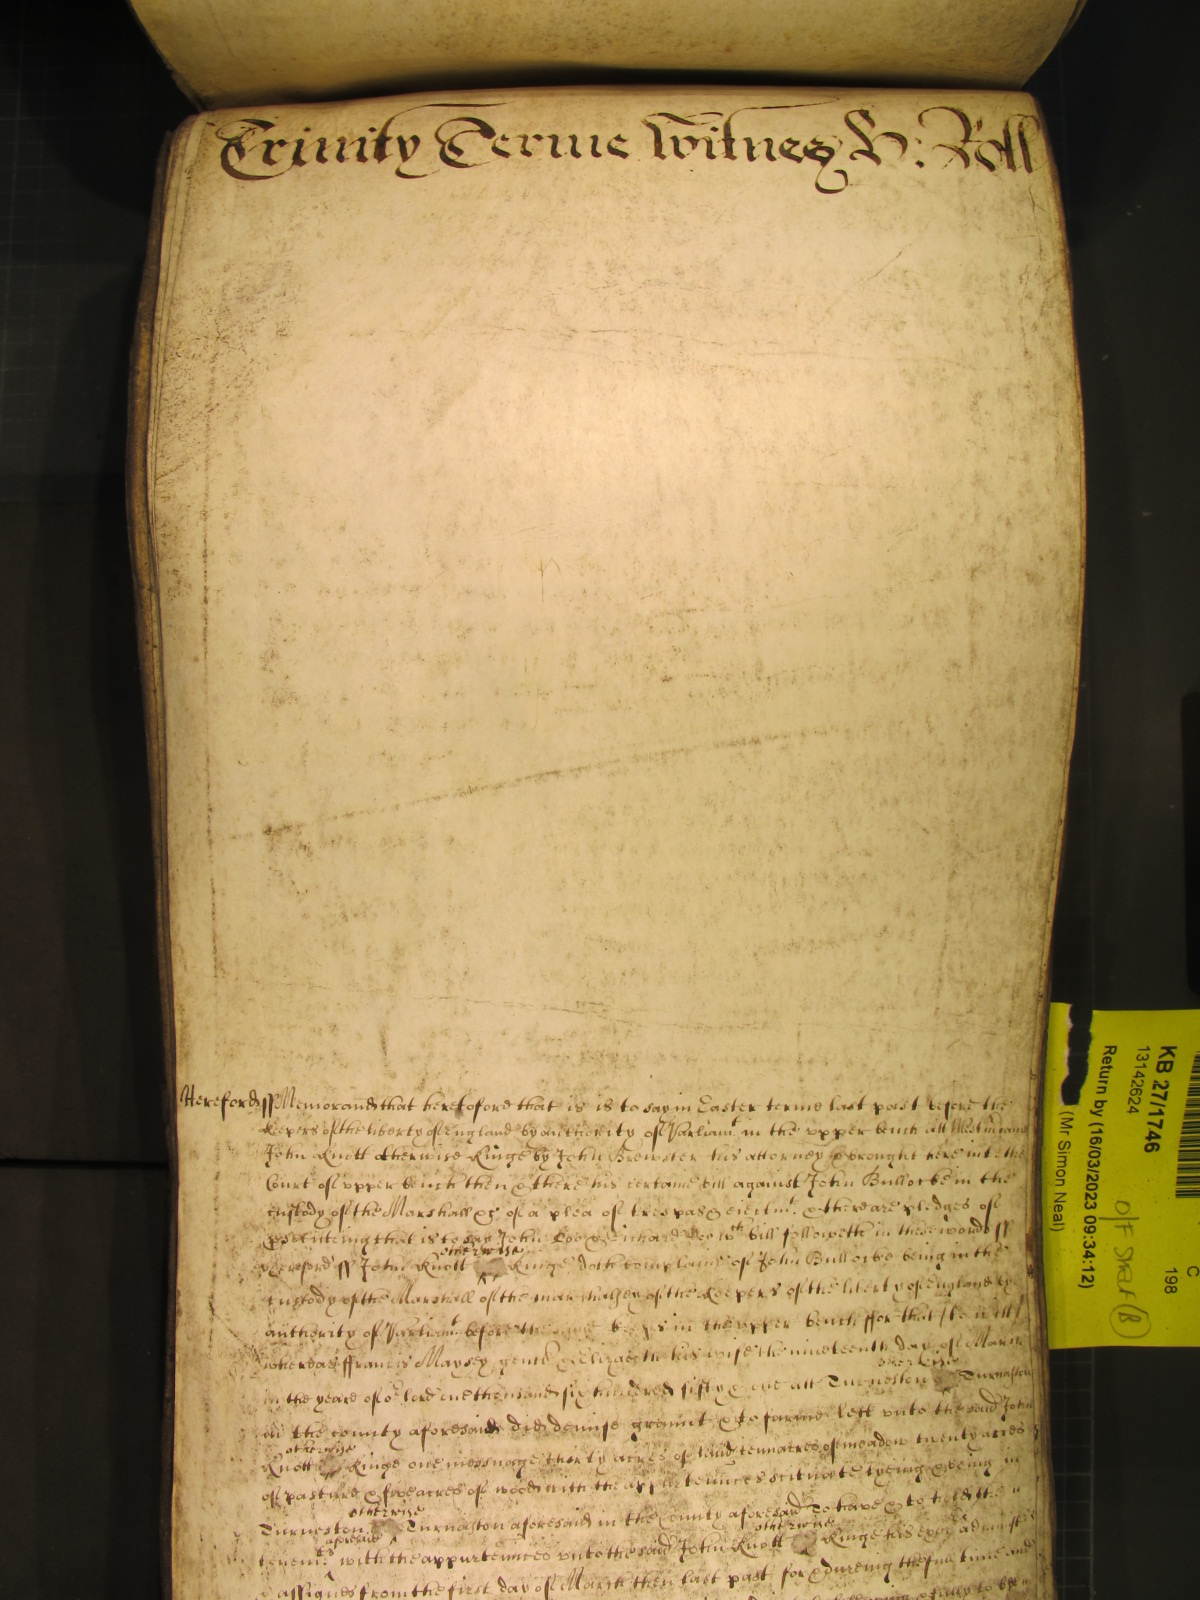 Trinity Terme Witnes H: Roll
Hereford ss Memorand that heretofore that is to say in Easter terme last past before the
Keepers of the liberty of England by authority of Parliamt in the upper bench att Westm
John Knott otherwise Kinge by John Brewster his attorney & brought here into the
Court of upper bench then & there his certaine bill against John Bullocke in the
custody of the Marshall &c of a plea of trespas & eiectmt & there are pledges of
prosecuting that is to say John Doe & Richard Roe wch bill followeth in these words ss
Hereford ss John Knott otherwise Kinge doth complaine of John Bullocke being in the
custody of the Marshall of the marshalsey of the Keepers of the liberty of England by
authority of Parliamt before the same keeps in the upper bench ffor that (to witt)
whereas ffrancis Maysey gent & Elizabeth his wife the nineteenth day of March
in the yeare of or lord one thousand six hundred fifty & one att Turneston otherwise Turnaston
in the county aforesaid did demise graunt & to farme lett unto the said John
Knott otherwise Kinge one messuage thirty acres of land tenn acres of meadow twenty acres
of pasture & five acres of wood with the appurtenнces scituate lyeing & being in
Turneston otherwise Turnaston aforesaid in the County aforesaid To have & to hold the
tenemts aforesd with the appurtennces unto the said John Knott otherwise Kinge his exors administrs
& assignes from the first day of March then last past for & dureing the full time and
fully to be
KB 27/1746
13142624
Return by (16/03/2023 09:34:12)
(Mr Simon Neal)
C
198